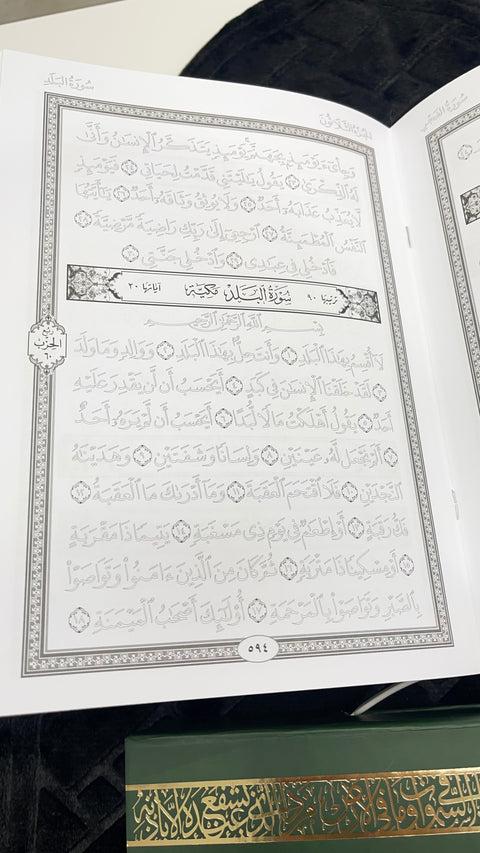 سُورَةُ البَلَدِ
الجُزْءُ الثَّلَاثُونَ
سُورَةُ الشَّمْسِ
وَجِاْىٓءَ يَوْمَئِذٍۭ بِجَهَنَّمَ يَوْمَئِذٍ يَتَذَكَّرُ ٱلْإِنسَٰنُ وَأَنَّىٰ
لَهُ ٱلذِّكْرَىٰ ٢٣ يَقُولُ يَٰلَيْتَنِى قَدَّمْتُ لِحَيَاتِى ٢٤ فَيَوْمَئِذٍ
لَّا يُعَذِّبُ عَذَابَهُۥٓ أَحَدٌ ٢٥ وَلَا يُوثِقُ وَثَاقَهُۥٓ أَحَدٌ ٢٦ يَٰٓأَيَّتُهَا
ٱلنَّفْسُ ٱلْمُطْمَئِنَّةُ ٢٧ ٱرْجِعِىٓ إِلَىٰ رَبِّكِ رَاضِيَةً مَّرْضِيَّةً ٢٨
فَٱدْخُلِى فِى عِبَٰدِى ٢٩ وَٱدْخُلِى جَنَّتِى ٣٠
ترتيبها ٩٠ سُورَةُ البَلَدِ مَكِّيَّة آياتها ٢٠
بِسْمِ ٱللَّهِ ٱلرَّحْمَٰنِ ٱلرَّحِيمِ
لَآ أُقْسِمُ بِهَٰذَا ٱلْبَلَدِ ١ وَأَنتَ حِلٌّۢ بِهَٰذَا ٱلْبَلَدِ ٢ وَوَالِدٍ وَمَا وَلَدَ
٣ لَقَدْ خَلَقْنَا ٱلْإِنسَٰنَ فِى كَبَدٍ ٤ أَيَحْسَبُ أَن لَّن يَقْدِرَ عَلَيْهِ
أَحَدٌ ٥ يَقُولُ أَهْلَكْتُ مَالًا لُّبَدًا ٦ أَيَحْسَبُ أَن لَّمْ يَرَهُۥٓ أَحَدٌ
٧ أَلَمْ نَجْعَل لَّهُۥ عَيْنَيْنِ ٨ وَلِسَانًا وَشَفَتَيْنِ ٩ وَهَدَيْنَٰهُ
ٱلنَّجْدَيْنِ ١٠ فَلَا ٱقْتَحَمَ ٱلْعَقَبَةَ ١١ وَمَآ أَدْرَىٰكَ مَا ٱلْعَقَبَةُ ١٢
فَكُّ رَقَبَةٍ ١٣ أَوْ إِطْعَٰمٌ فِى يَوْمٍ ذِى مَسْغَبَةٍ ١٤ يَتِيمًا ذَا مَقْرَبَةٍ
١٥ أَوْ مِسْكِينًا ذَا مَتْرَبَةٍ ١٦ ثُمَّ كَانَ مِنَ ٱلَّذِينَ ءَامَنُوا۟ وَتَوَاصَوْا۟
بِٱلصَّبْرِ وَتَوَاصَوْا۟ بِٱلْمَرْحَمَةِ ١٧ أُو۟لَٰٓئِكَ أَصْحَٰبُ ٱلْمَيْمَنَةِ ١٨
الحِزْب
٦٠
٥٩٤